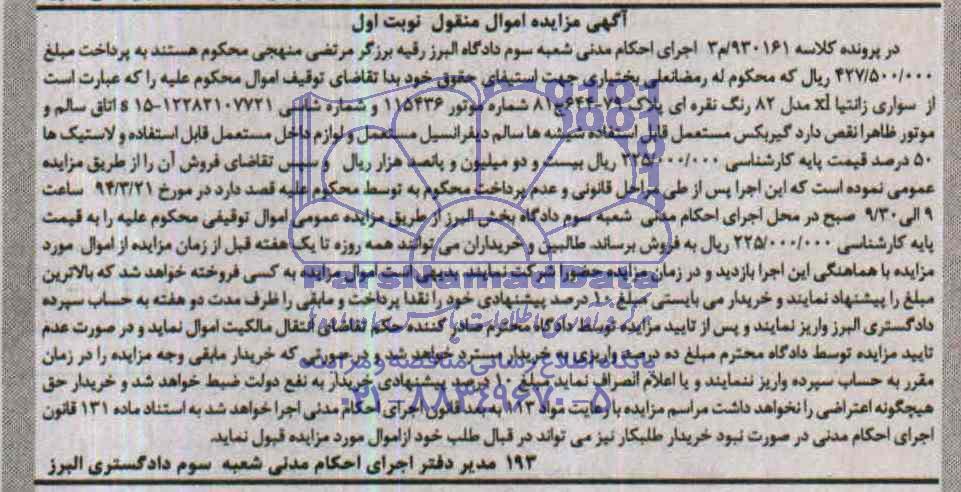 آگهی مزایده اموال منقول نوبت اول
در پرونده کلاسه ۹۳۰۱۶۱/م۳ اجرای احکام مدنی شعبه سوم دادگاه البرز رقیه برزگر مرتضی منهجی محکوم هستند به پرداخت مبلغ
۴۲۷/۵۰۰/۰۰۰ ریال که محکوم له رمضانعلی بختیاری جهت استیفای حقوق خود بدا تقاضای توقیف اموال محکوم علیه را که عبارت است
از سواری زانتیا xl مدل ۸۲ رنگ نقره ای پلاک ۷۹-۶۴۴ شماره موتور ۱۱۵۴۳۶ و شماره شاسی s ۱۵-۱۲۲۸۲۱۰۷۷۲۱ اتاق سالم و
موتور ظاهرا نقص دارد گیربکس مستعمل قابل استفاده شیشه ها سالم دیفرانسیل مستعمل و لوازم داخل مستعمل قابل استفاده و لاستیک ها
۵۰ درصد قیمت پایه کارشناسی ۲۲۵/۰۰۰/۰۰۰ ریال بیست و دو میلیون و پانصد هزار ریال و سپس تقاضای فروش آن را از طریق مزایده
عمومی نموده است که این اجرا پس از طی مراحل قانونی و عدم پرداخت محکوم به توسط محکوم علیه قصد دارد در مورخ ۹۴/۳/۲۱ ساعت
۹ الی ۹/۳۰ صبح در محل اجرای احکام مدنی شعبه سوم دادگاه بخش البرز از طریق مزایده عمومی اموال توقیفی محکوم علیه را به قیمت
پایه کارشناسی ۲۲۵/۰۰۰/۰۰۰ ریال به فروش برساند. طالبین و خریداران می توانند همه روزه تا یک هفته قبل از زمان مزایده از اموال مورد
مزایده با هماهنگی این اجرا بازدید و در زمان مزایده حضورا شرکت نمایند بدیهی است اموال مزایده به کسی فروخته خواهد شد که بالاترین
مبلغ را پیشنهاد نمایند و خریدار می بایستی مبلغ ۱۰ درصد پیشنهادی خود را نقدا پرداخت و مابقی را ظرف مدت دو هفته به حساب سپرده
دادگستری البرز واریز نمایند و پس از تایید مزایده توسط دادگاه محترم صادر کننده حکم تقاضای انتقال مالکیت اموال نماید و در صورت عدم
تایید مزایده توسط دادگاه محترم مبلغ ده درصد واریزی به خریدار مسترد خواهد شد و در صورتی که خریدار مابقی وجه مزایده را در زمان
مقرر به حساب سپرده واریز ننمایند و یا اعلام انصراف نماید مبلغ ۱۰ درصد پیشنهادی خریدار به نفع دولت ضبط خواهد شد و خریدار حق
هیچگونه اعتراضی را نخواهد داشت مراسم مزایده با رعایت مواد ۱۱۳ به بعد قانون اجرای احکام مدنی اجرا خواهد شد به استناد ماده ۱۳۱ قانون
اجرای احکام مدنی در صورت نبود خریدار طلبکار نیز می تواند در قبال طلب خود ازاموال مورد مزایده قبول نماید.
۱۹۳ مدیر دفتر اجرای احکام مدنی شعبه سوم دادگستری البرز
ParsNamadData
پایگاه اطلاع رسانی مناقصه و مزایده
۰۲۱-۸۸۳۴۹۶۷۰-۵